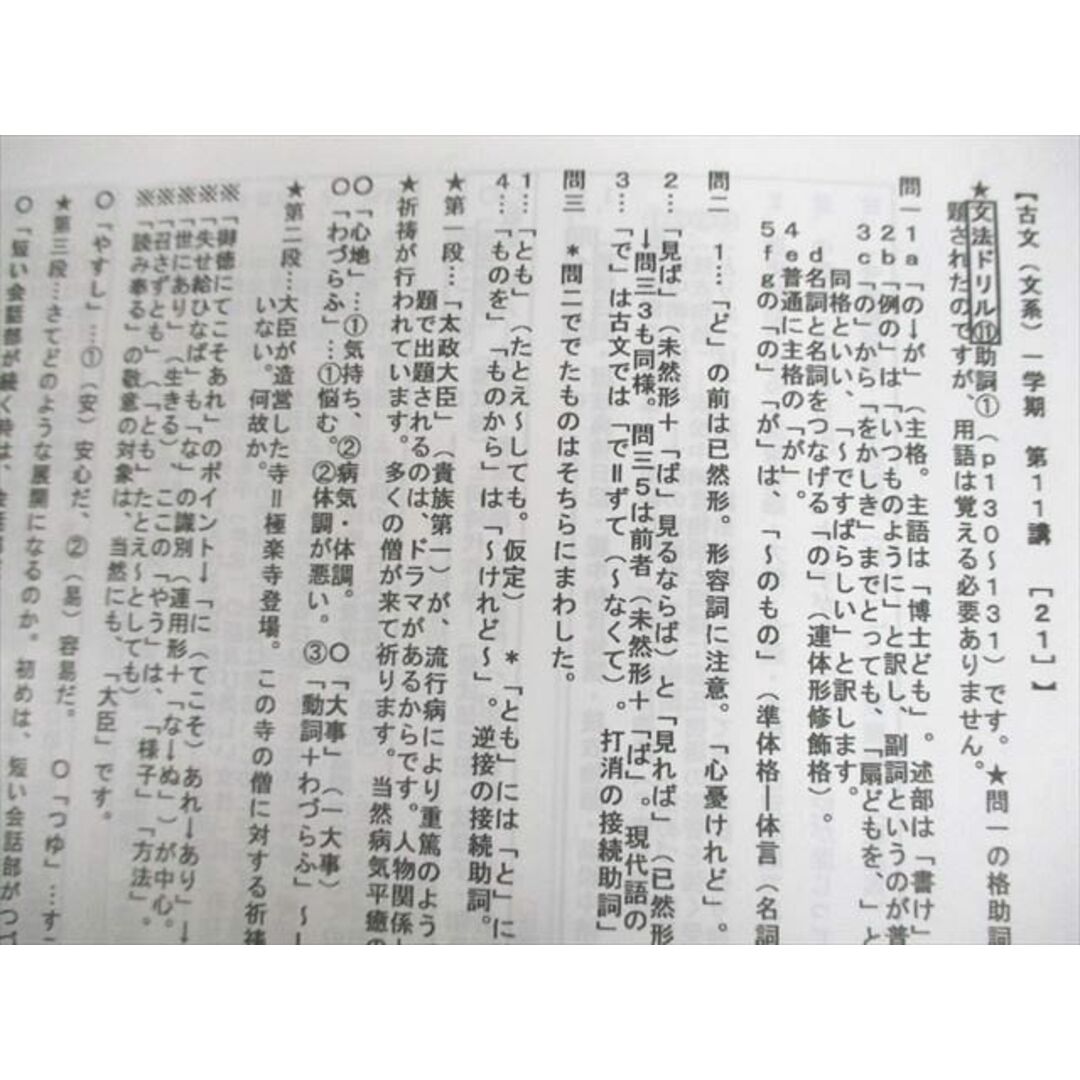 【古文（文系）一学期　第11講　［21］】
★文法ドリル⑪助詞①（p130～131）です。★問一の格助詞
題されたのですが、用語は覚える必要ありません。
問一1a「の→が」（主格。主語は「博士ども」。述部は「書け」
2b「例の」は「いつものように」と訳し、副詞というのが普
3c「の」から「をかしき」までとっても、「扇どもを、」と
同格といい、「～ですばらしい」と訳します。
d名詞と名詞をつなげる「の」（連体形修飾格）。
4e普通に主格の「が」。
5fgの「の」「が」は、「～のもの」（準体格―体言（名詞
問二　1…「ど」の前は已然形。形容詞に注意。「心憂けれど」。
2…「見ば」（未然形＋「ば」見るならば）と「見れば」（已然形
→問三3も同様。問三5は前者（未然形＋「ば」。現代語の
3…「で」は古文では「で＝ずて（～なくて）。打消の接続助詞」
問三　＊問二ででたものはそちらにまわした。
1…「とも」（たとえ～しても。仮定）　＊「とも」には「と」に
4…「ものを」、「ものから」は「～けれど～」。逆接の接続助詞。
★第一段…「太政大臣」（貴族第一）が、流行病により重篤のよう
題で出題されるのは、ドラマがあるからです。人物関係
★祈祷が行われています。多くの僧が来て祈ります。当然病気平癒の
〇「心地」…①気持ち、②病気・体調。　〇「大事」（一大事）
〇「わづらふ」…①悩む。②体調が悪い。③「動詞＋わづらふ」～
★第二段…大臣が造営した寺＝極楽寺登場。この寺の僧に対する祈祷
いない。何故か。
※「御徳にてこそあれ」のポイント→「に（てこそ）あれ→あり」→
※「失せ給ひなば」も「な」の識別（連用形＋「な→ぬ」）が中心。
※「世にあり」（生きる）ここの「やう」は、「様子」「方法」。
※「召さずとも」（「とも」たとえ～としても）
※「読み奉る」の敬意の対象は、当然にも、「大臣」です。
〇「やすし」…①（安）安心だ、②（易）容易だ。　〇「つゆ」…す
★第三段…さてどのような展開になるのか。初めは、短い会話部がつづ
〇「短い会話部が続く時は、